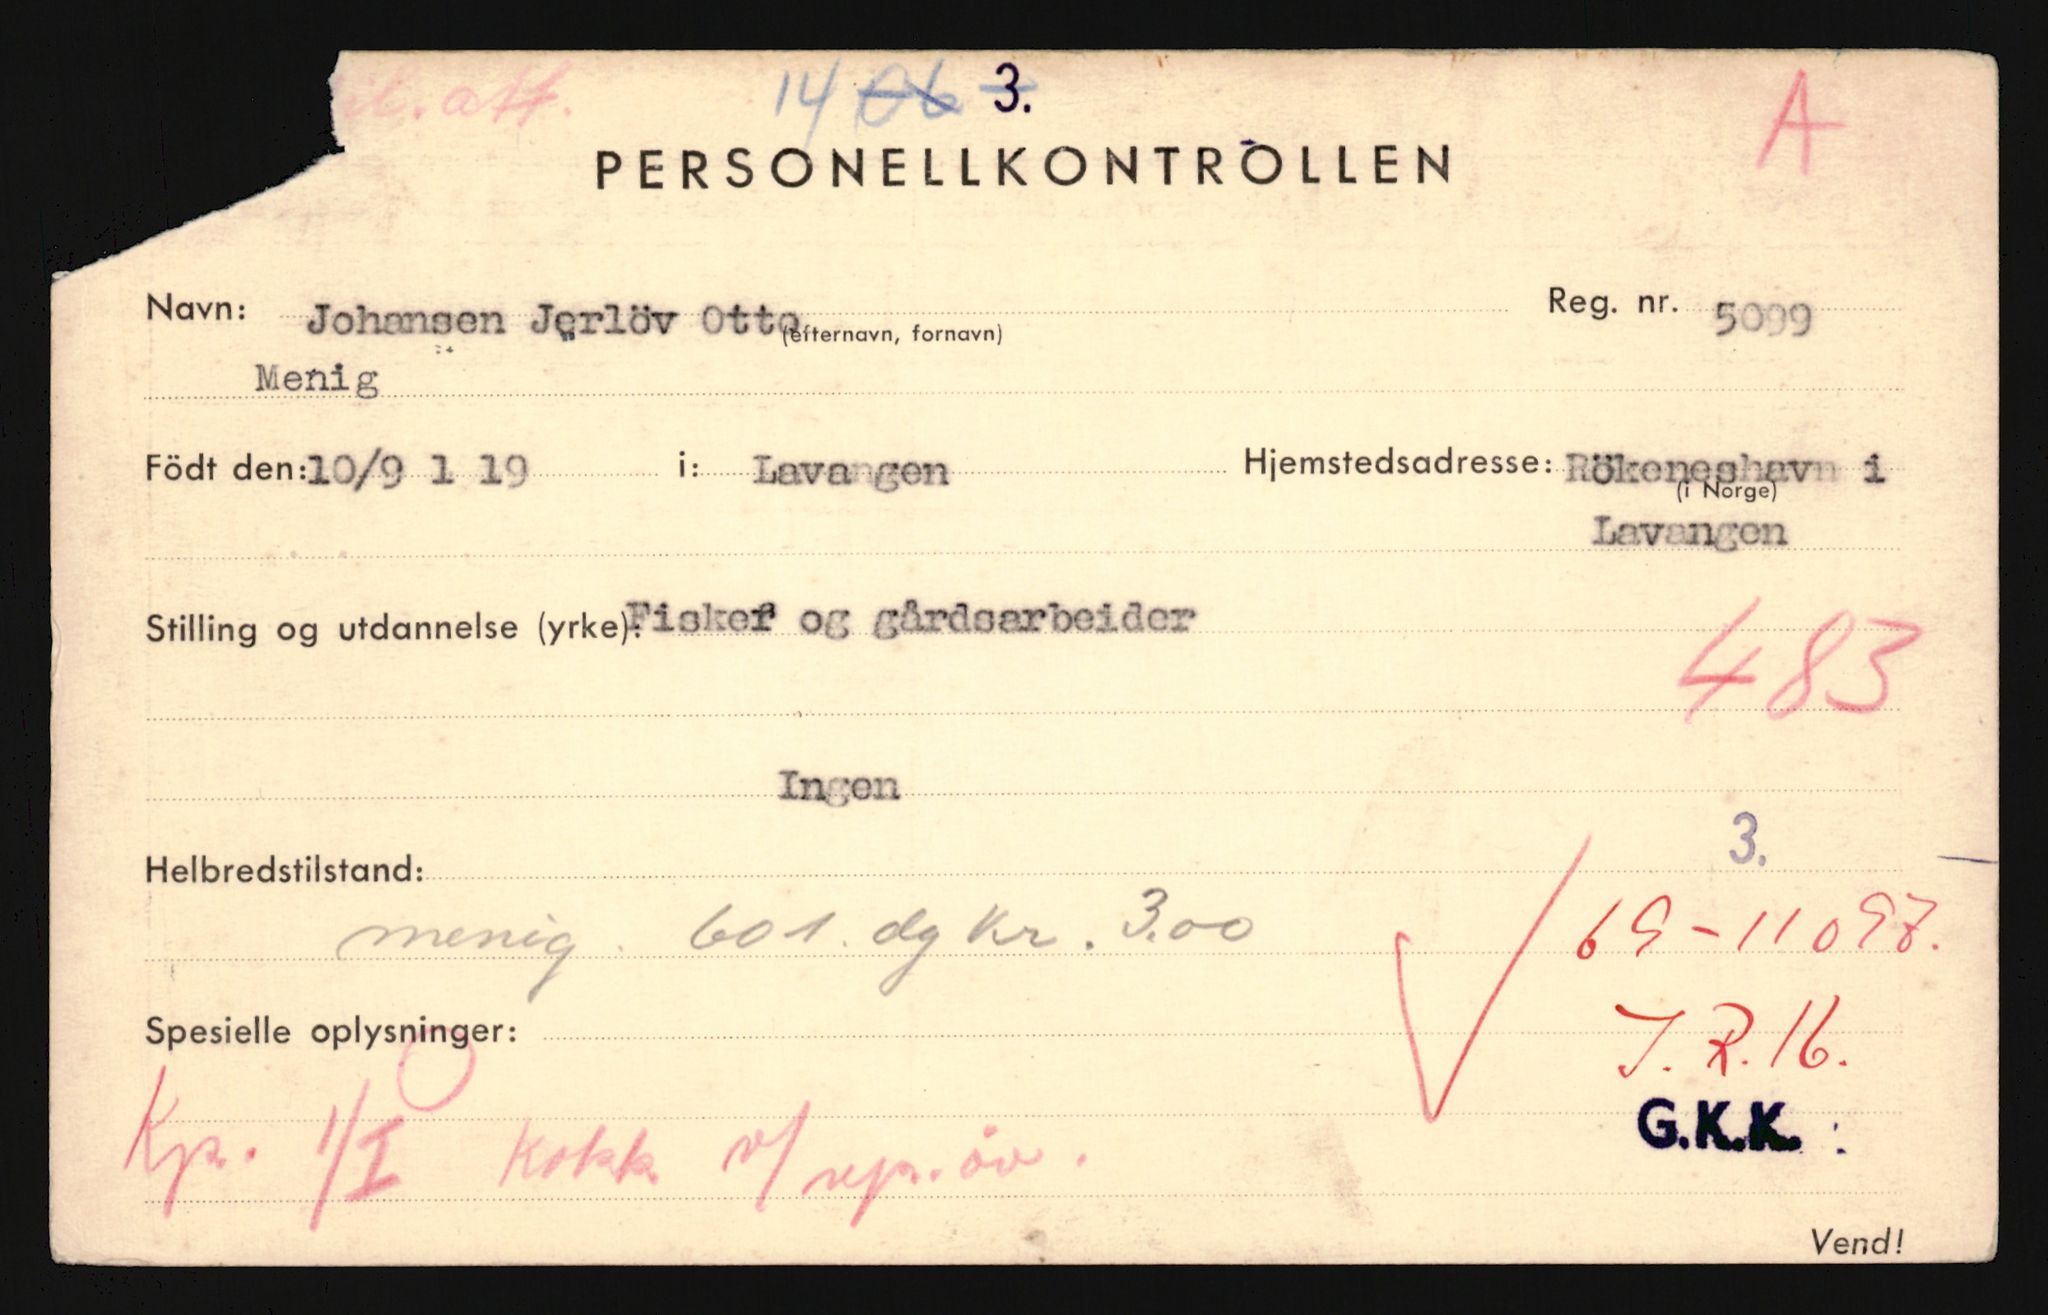 il. att. 14 06 3. A
PERSONELLKONTROLLEN
Navn: Johansen Jerlöv Otto (efternavn, fornavn) Reg. nr. 5099
Menig
Födt den: 10/9 1 19 i: Lavangen Hjemstedsadresse: Rökeneshavn i
(i Norge)
Lavangen
Stilling og utdannelse (yrke): Fisker og gårdsarbeider
483
Ingen
3.
Helbredstilstand:
menig. 601. dg kr. 3.00 69-11097.
Spesielle oplysninger: J. R. 16.
G.K.K. :
Kp. 1/I Kokk v/rep.öv.
Vend!